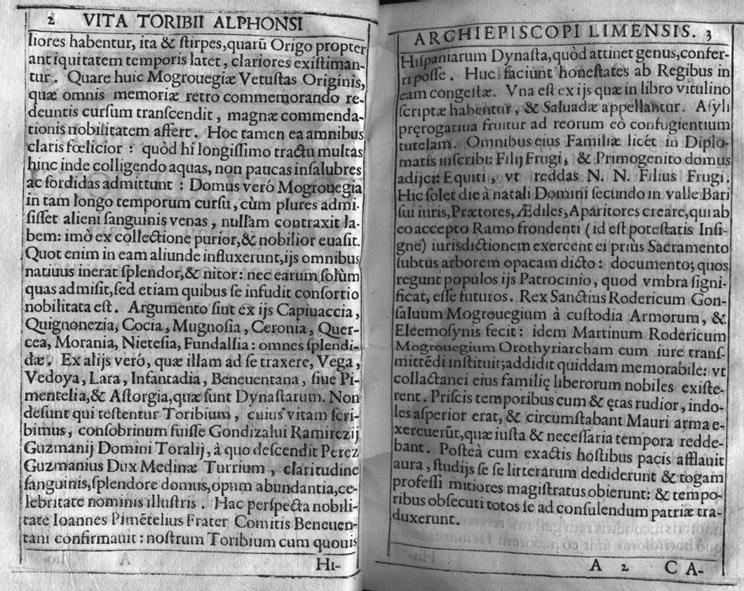 2 VITA TORIBII ALPHONSI
liores habentur, ita & stirpes, quarũ Origo propter
antiquitatem temporis latet, clariores existiman-
tur. Quare huic Mogrouegiæ Vetustas Originis,
quæ omnis memoriæ retro commemorando re-
deuntis cursum transcendit, magnæ commenda-
tionis nobilitatem affert. Hoc tamen ea amnibus
claris fœlicior: quòd hi longissimo tractu multas
hinc inde colligendo aquas, non paucas insalubres
ac sordidas admittunt: Domus verò Mogrouegia
in tam longo temporum cursu, cùm plures admi-
sisset alieni sanguinis venas, nullam contraxit la-
bem: imò ex collectione purior, & nobilior euasit.
Quot enim in eam aliunde influxerunt, ijs omnibus
natiuus inerat splendor, & nitor: nec earum solùm
quas admisit, sed etiam quibus se infudit consortio
nobilitata est. Argumento sint ex ijs Capiuaccia,
Quignonezia, Cocia, Mugnosia, Ceronia, Quer-
cea, Morania, Nietesia, Fundalsia: omnes splendi-
dæ. Ex alijs verò, quæ illam ad se traxere, Vega,
Vedoya, Lara, Infantadia, Beneuentana, siue Pi-
mentelia, & Astorgia, quæ sunt Dynastarum. Non
desunt qui testentur Toribium, cuius vitam scri-
bimus, consobrinum fuisse Gondizalui Ramirezij
Guzmanij Domini Toralij, à quo descendit Perez
Guzmanius Dux Medinæ Turrium, claritudine
sanguinis, splendore domus, opum abundantia, ce-
lebritate nominis illustris. Hac perspecta nobili-
tate Ioannes Pimẽtelius Frater Comitis Beneuen-
tani confirmauit: nostrum Toribium cum quouis
Hi-
ARCHIEPISCOPI LIMENSIS. 3
Hispaniarum Dynasta, quòd attinet genus, confer-
ri posse. Huc faciunt honestates ab Regibus in
eam congestæ. Vna est ex ijs quæ in libro vitulino
scriptæ habentur, & Saluadæ appellantur. Asyli
pręrogatiua fruitur ad reorum eò confugientium
tutelam. Omnibus eius Familiæ licèt in Diplo-
matis inscribi: Filij Frugi, & Primogenito domus
adijci: Equiti, vt reddas N. N. Filius Frugi.
Hic solet die à natali Domini secundo in valle Bari
sui iuris, Prætores, Ædiles, Aparitores creare, qui ab
eo accepto Ramo frondenti (id est potestatis Insi-
gne) iurisdictionem exercent ei prius Sacramento
subtus arborem opacam dicto: documento; quos
regunt populos ijs Patrocinio, quod vmbra signi-
ficat, esse futuros. Rex Sanctius Rodericum Gon-
saluum Mogrouegium à custodia Armorum, &
Eleemosynis fecit: idem Martinum Rodericum
Mogrouegium Orothyriarcham cum iure trans-
mittẽdi instituit; addidit quiddam memorabile: vt
collactanei eius familię liberorum nobiles existe-
rent. Priscis temporibus cum & ętas rudior, indo-
les asperior erat, & circumstabant Mauri arma e-
xercuerũt, quæ iusta & necessaria tempora redde-
bant. Posteà cum exactis hostibus pacis afflauit
aura, studijs se se litterarum dediderunt & togam
professi mitiores magistratus obierunt: & tempo-
ribus obsecuti totos se ad consulendum patriæ tra-
duxerunt.
A 2 CA-